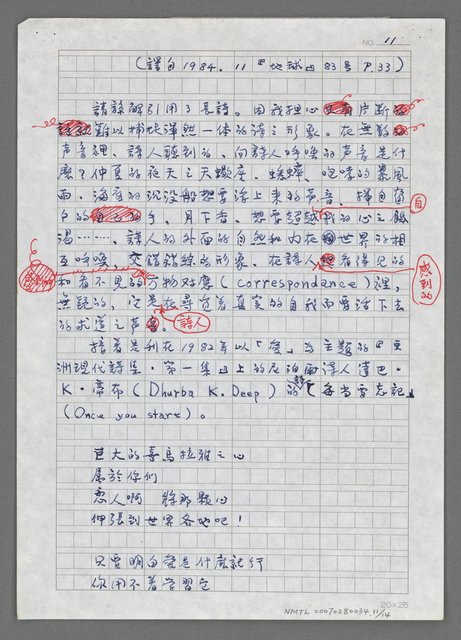 NO. 11
(譯自1984.11『地球』83号 P.33)
請諒解引用了長詩。因我担心片断
難以捕捉渾然一体的詩之形象。在無數
声音裡、詩人聽到的、向詩人呼喚的声音是什
麼?仲夏的夜天之天蠍座、蟋蟀、咆哮的暴風
雨、海底的沉没船想要浮上來的声音、揮自
白的手、月下香、想要超越我的心之飢
渴……、詩人的外面的自然和内在世界的相
自
互呼喚、交錯錯綜的形象、在詩人看得見的
感到的
和看不見的万物対應(correspondance)裡,
無疑的,是在尋覓着真實的自我而要活下去
的求道之声。
詩人
接着是刊在1982年以「愛」為主題的『亞
洲現代詩集·第一集』上的尼泊爾詩人達巴·
K·帝布(Dhurba K. Deep)的詩〔每当要忘記〕
(Once you start)。
巨大的喜馬拉雅之心
屬於你們
恋人啊 將那顆心
伸張到世界各地吧!
只要明白愛是什麼就行
你用不着学習它
20×25
NMTL 20070280034.11/14